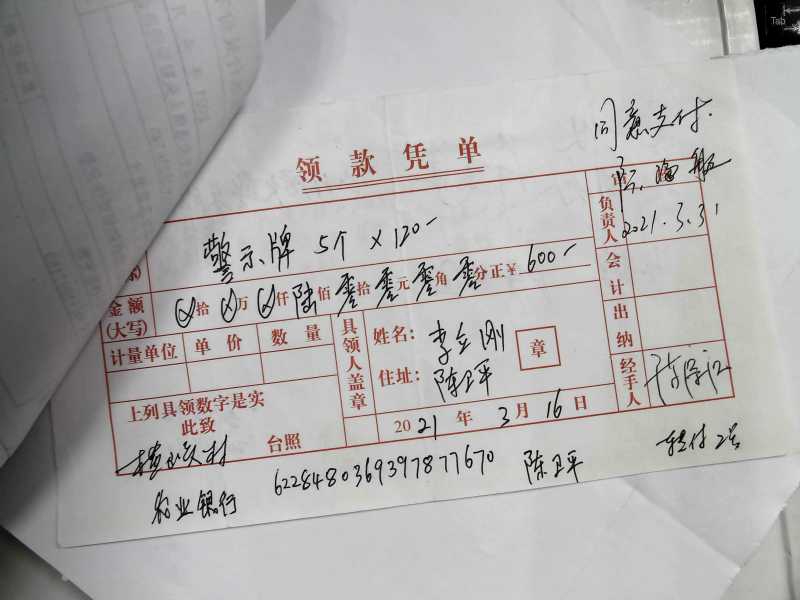 Tab
同意支付.
领款凭单
审
负责人 2021.3.31
警示牌 5个 ×120-
金额(大写) ⊗拾⊗万⊗仟陆佰零拾零元零角零分正¥600-
会计
计量单位 单价 数量
具领人盖章
姓名: 李立刚
章
出纳
住址: 陈卫平
经手人
上列具领数字是实
此致
台照
2021年3月16日
农业银行 6228480369397877670 陈卫平